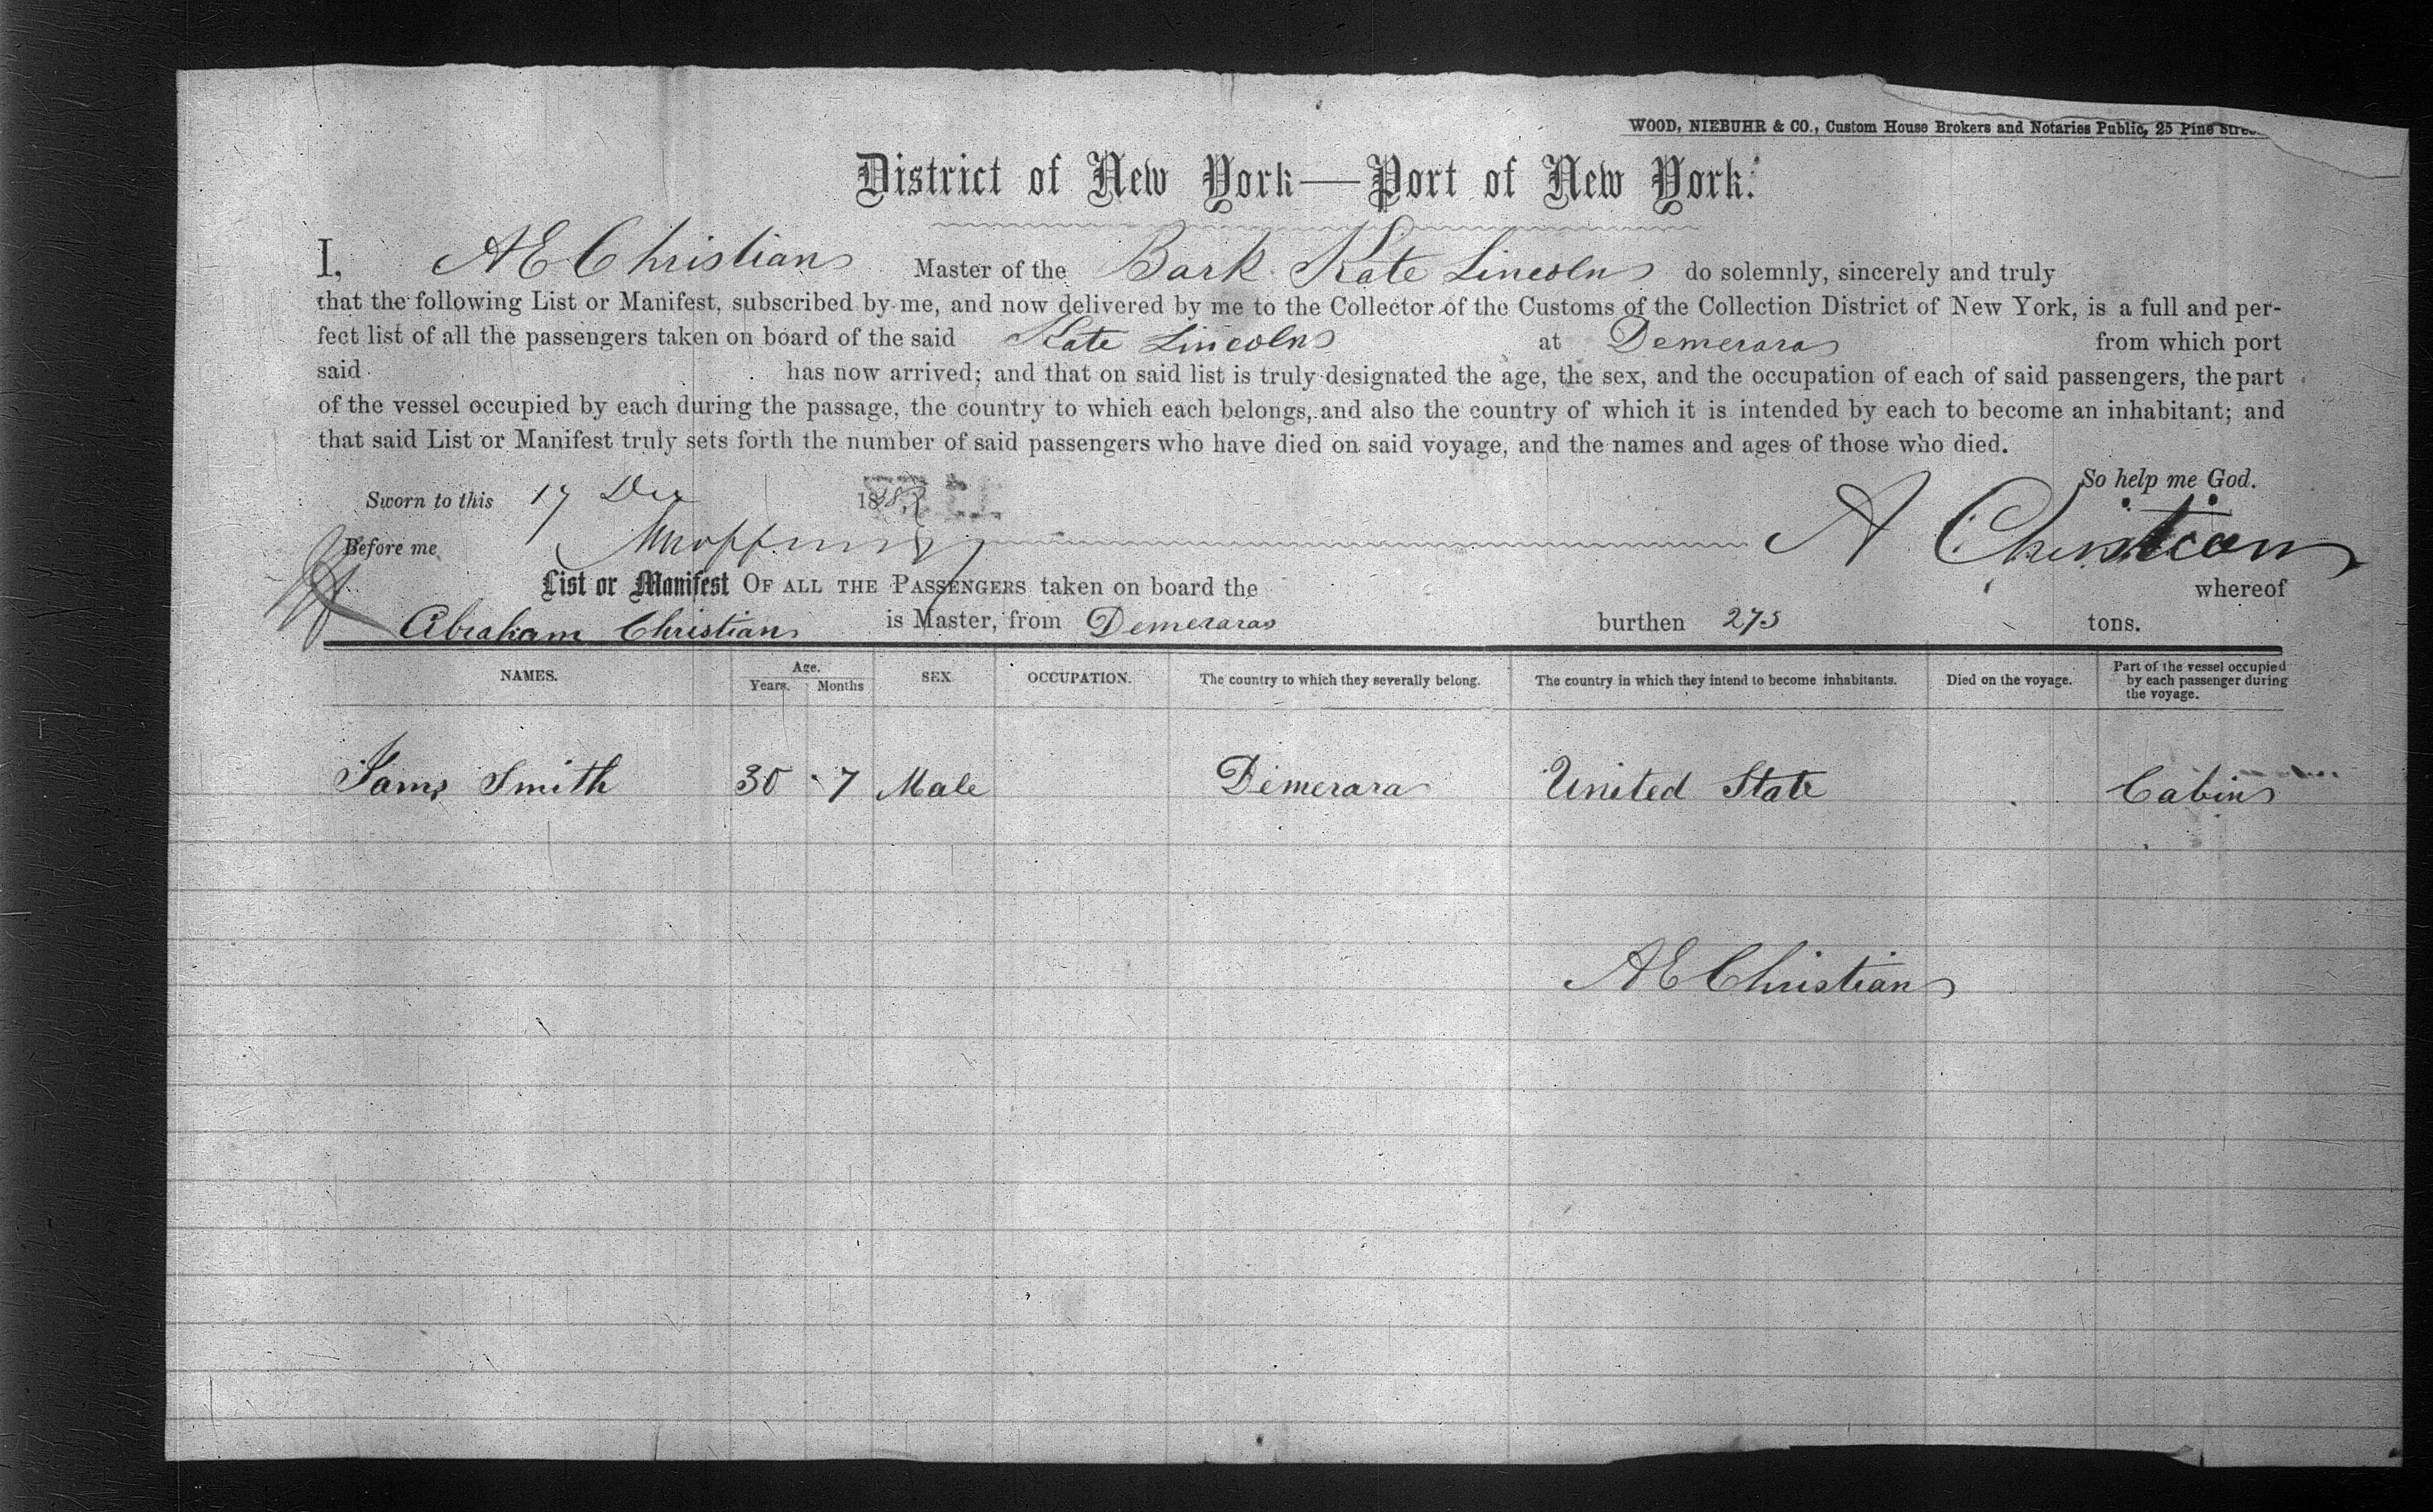 WOOD, NIEBUHR & CO., Custom House Brokers and Notaries Public, 25 Pine
District of New York—Port of New York.
I, A E Christian Master of the Bark Kate Lincoln do solemnly, sincerely and truly
that the following List or Manifest, subscribed by me, and now delivered by me to the Collector of the Customs of the Collection District of New York, is a full and per-
fect list of all the passengers taken on board of the said Kate Lincoln at Demerara from which port
said has now arrived; and that on said list is truly designated the age, the sex, and the occupation of each of said passengers, the part
of the vessel occupied by each during the passage, the country to which each belongs, and also the country of which it is intended by each to become an inhabitant; and
that said List or Manifest truly sets forth the number of said passengers who have died on said voyage, and the names and ages of those who died.
So help me God.
Sworn to this 17 Dec
Before me A Christian
List or Manifest OF ALL THE PASSENGERS taken on board the whereof
Abraham Christian is Master, from Demerara burthen 275 tons.
NAMES. Age. Years. Months SEX OCCUPATION. The country to which they severally belong. The country in which they intend to become inhabitants. Died on the voyage. Part of the vessel occupied by each passenger during the voyage.
Jams Smith 30 7 Male Demerara United State Cabin
A E Christian